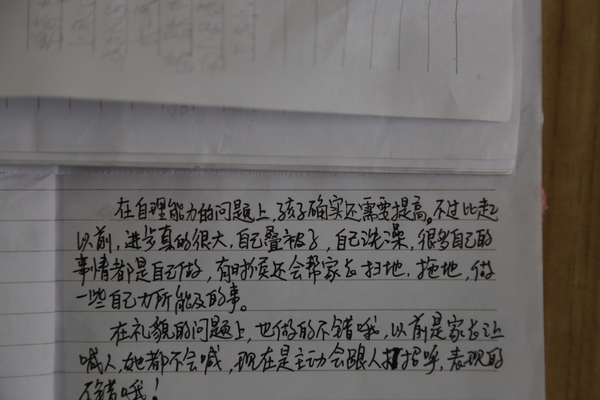 在自理能力的问题上,孩子确实还需要提高。不过比起
以前,进步真的很大,自己叠被子,自己洗澡,很多自己的
事情都是自己做,有时候还会帮家长扫地,拖地,做
一些自己力所能及的事。
在礼貌的问题上,也做的不错哦,以前是家长让
喊人,她都不会喊,现在是主动会跟人打招呼,表现的
不错哦!